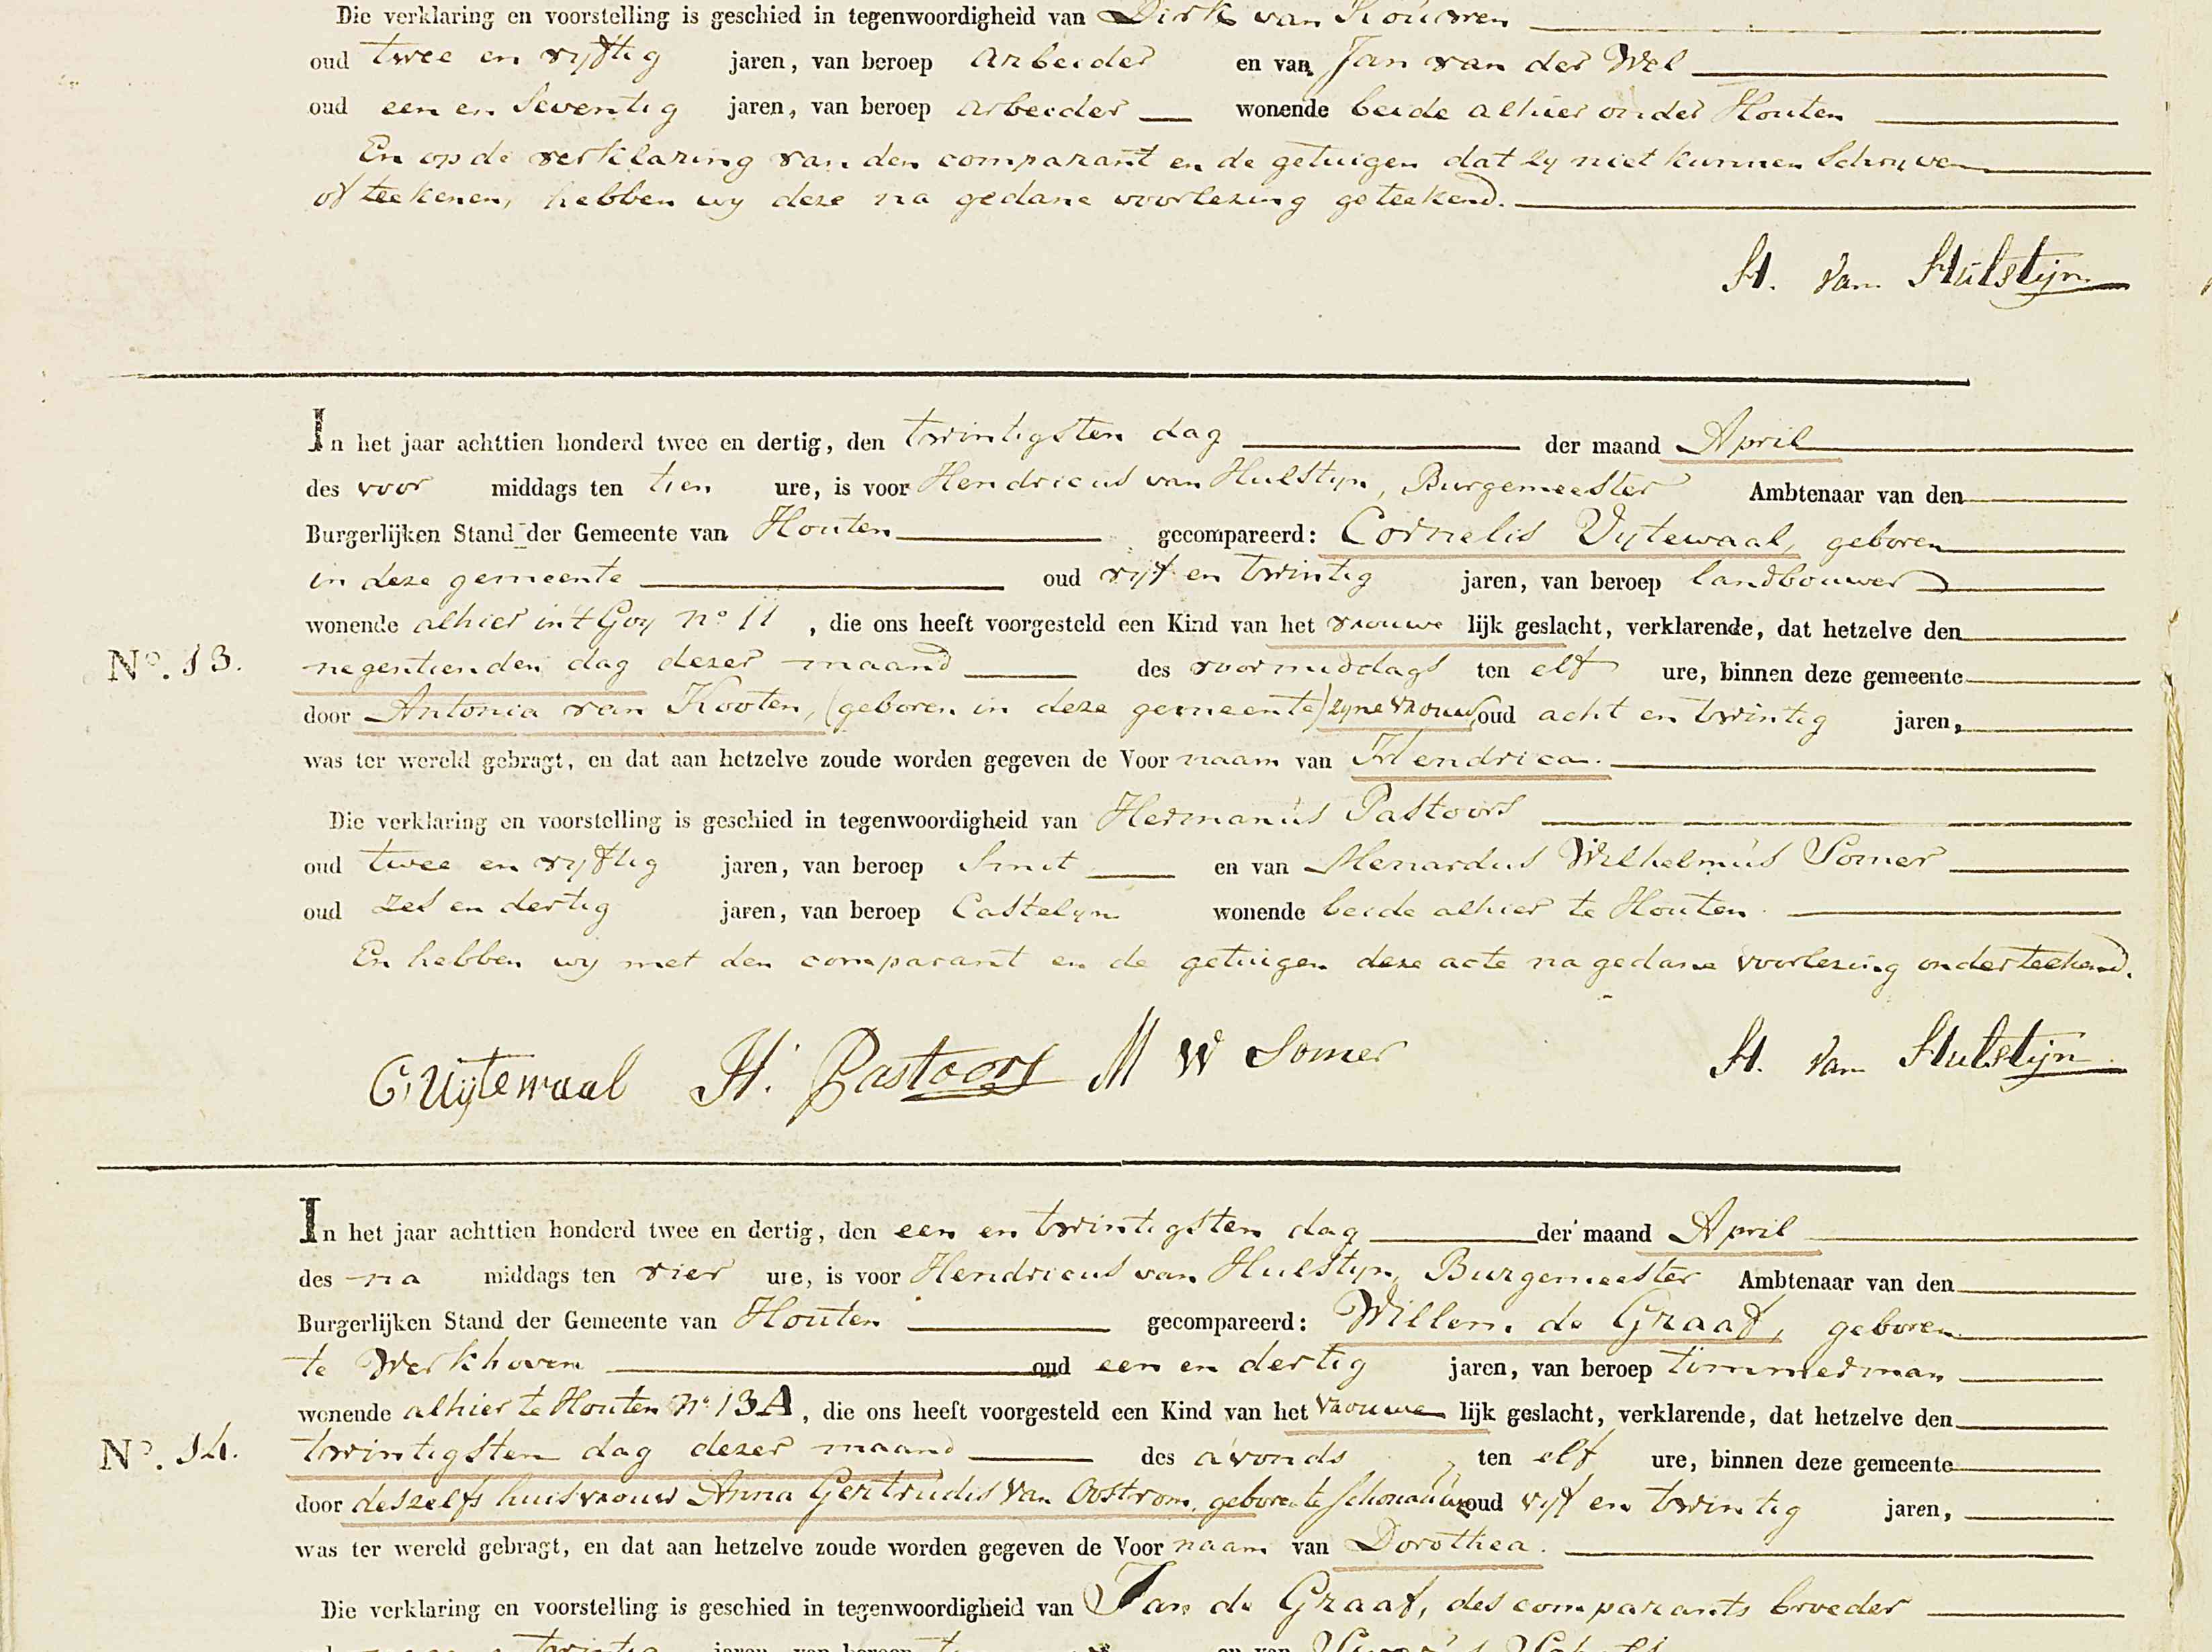 Die verklaring en voorstelling is geschied in tegenwoordigheid van Dirk van
oud twee en vyftig jaren, van beroep arbeider en van Jan van der Wel
oud een en seventig jaren, van beroep arbeider wonende beide alhier onder Houten
En op de verklaring van den comparant en de getuigen dat zy niet kunnen schryven
of teekenen, hebben wy deze na gedane voorlezing geteekend.
H. van Hulstijn
In het jaar achttien honderd twee en dertig, den twintigsten dag der maand April
des voor middags ten tien ure, is voor Hendricus van Hulstyn, Burgemeester Ambtenaar van den
Burgerlijken Stand der Gemeente van Houten gecompareerd: Cornelis Uytewaal, geboren
in deze gemeente oud vyf en twintig jaren, van beroep landbouwer
wonende alhier in 't Goy no 11, die ons heeft voorgesteld een Kind van het vrouwe lijk geslacht, verklarende, dat hetzelve den
No. 13. negentienden dag dezer maand des voormiddags ten elf ure, binnen deze gemeente
door Antonia van Kooten, (geboren in deze gemeente) zyne vrouw, oud acht en twintig jaren,
was ter wereld gebragt, en dat aan hetzelve zoude worden gegeven de Voor naam van Hendrica.
Die verklaring en voorstelling is geschied in tegenwoordigheid van Hermanus Pastoors
oud twee en vyftig jaren, van beroep Smit en van Menardus Wilhelmus Somer
oud zes en dertig jaren, van beroep Castelyn wonende beide alhier te Houten
En hebben wy met den comparant en de getuigen deze acte na gedane voorlezing onderteekend.
C. Uijtewaal H. Pastoors M W Somer H. van Hulstijn
In het jaar achttien honderd twee en dertig, den een en twintigsten dag der maand April
des na middags ten vier ure, is voor Hendricus van Hulstyn, Burgemeester Ambtenaar van den
Burgerlijken Stand der Gemeente van Houten gecompareerd: Willem de Graaf, geboren
te Werkhoven oud een en dertig jaren, van beroep timmerman
wonende alhier te Houten No 13A, die ons heeft voorgesteld een Kind van het vrouwe lijk geslacht, verklarende, dat hetzelve den
No. 14. twintigsten dag dezer maand des avonds ten elf ure, binnen deze gemeente
door deszelfs huisvrouw Anna Gertrudis van Oostrom, geboren te Schonauwe oud vyf en twintig jaren,
was ter wereld gebragt, en dat aan hetzelve zoude worden gegeven de Voor naam van Dorothea.
Die verklaring en voorstelling is geschied in tegenwoordigheid van Jan de Graaf, des comparants broeder